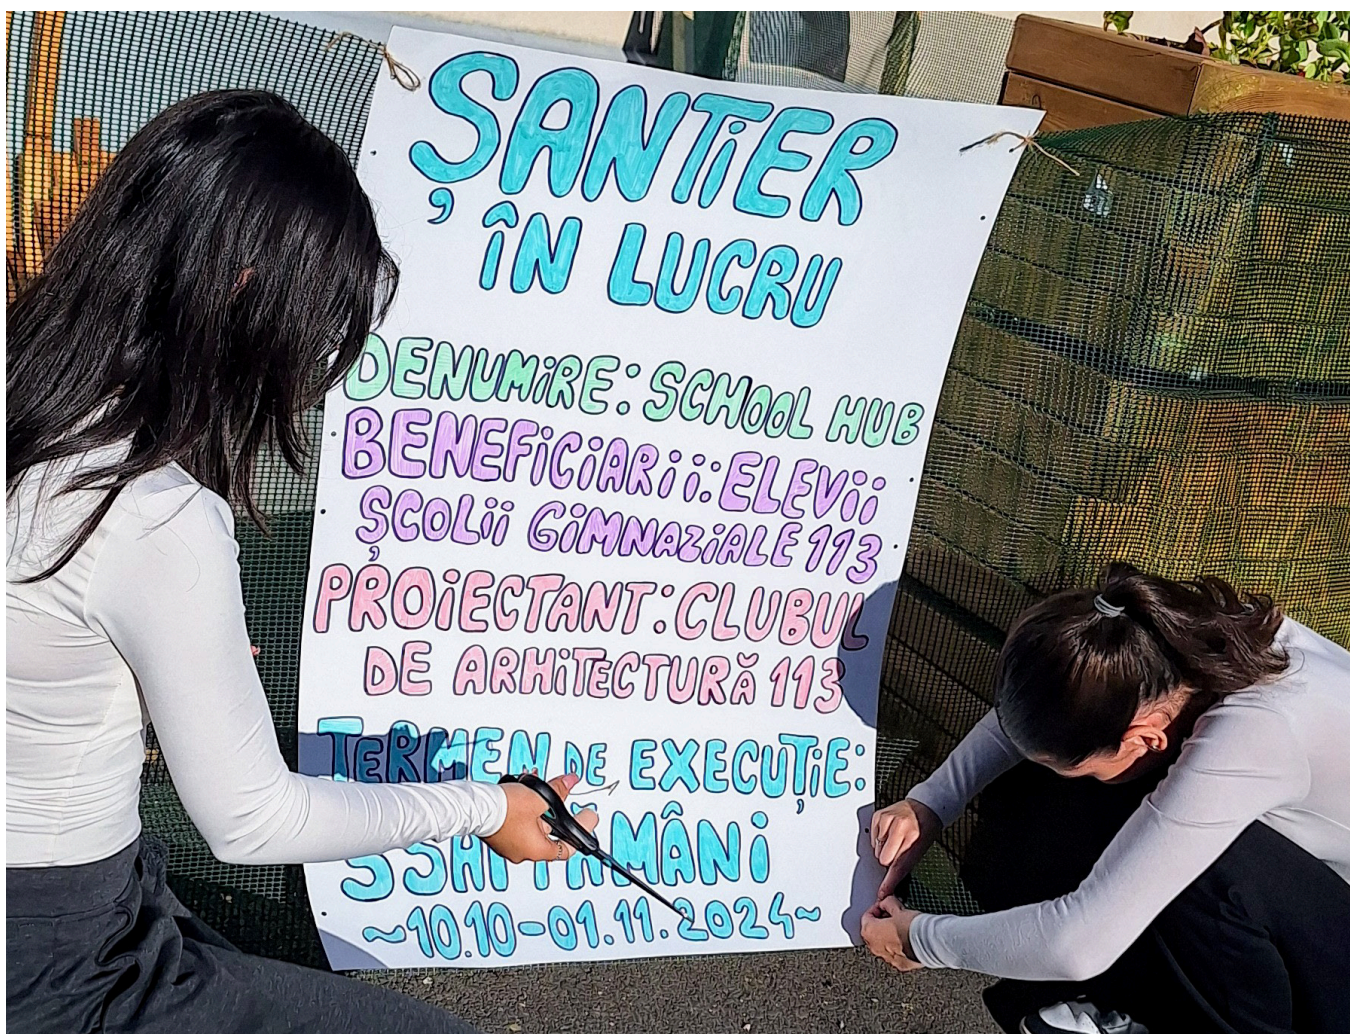 ȘANTiER
ÎN LUCRU
DENUMiRE: SCHOOL HUB
BENEFiCiARii: ELEVii
ȘCOLii GiMNAZiALE 113
PROiECTANT: CLUBUL
DE ARHiTECTURĂ 113
TERMEN DE EXECUȚiE:
3 SĂPTĂMÂNi
~10.10-01.11.2024~